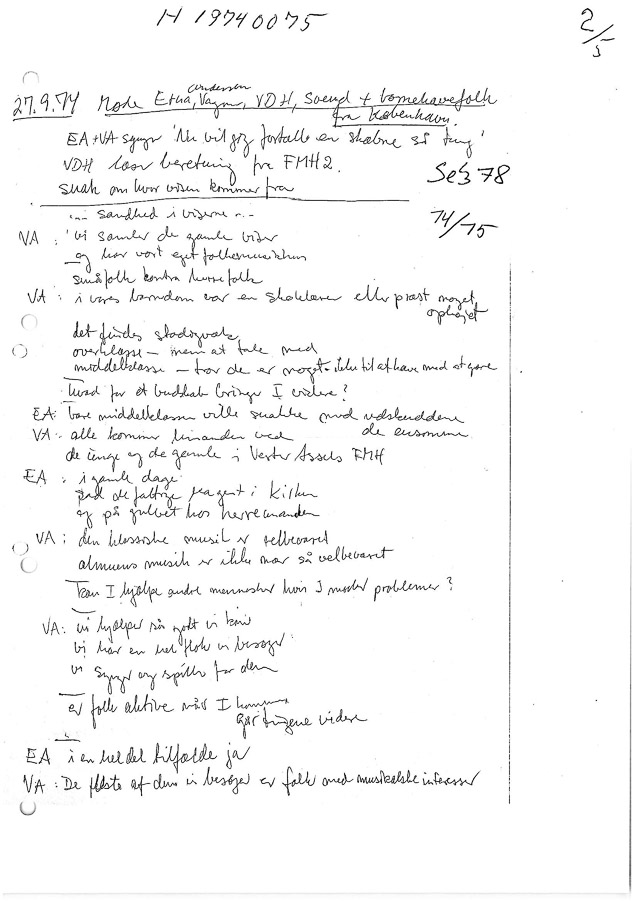 H 19740075
2/5
Andersen
27.9.74 Møde Etha, Vagn, VDH, Svend + børnehavefolk
fra København.
EA+VA synger 'Nu vil jeg fortælle en skæbne så tung'
VDH læser beretning fra FMH2.
Se's 78
snak om hvor visen kommer fra
... sandhed i viserne ...
74/75
VA : 'vi samler de gamle viser
og har vort eget folkemusikhus
småfolk kontra herrefolk
VA : i vores barndom var en skolelærer eller præst noget
ophøjet
det findes stadigvæk
overklasse – men at tale med
middelklasse – for de er noget ikke til at have med at gøre
hvad for et budskab bringer I videre?
EA: bare middelklassen ville snakke med udskuddene
de ensomme
VA: alle kommer hinanden ved
de unge og de gamle i Vester Assels FMH
EA : i gamle dage
sad de fattige bagest i kirken
og på gulvet hos herremanden
VA : den klassiske musik er velbevaret
almuens musik er ikke nær så velbevaret
kan I hjælpe andre mennesker hvis I møder problemer?
VA: vi hjælper så godt vi kan
vi har en hel flok vi besøger
vi synger og spiller for dem
er folk aktive når I kommer
gør tingene videre
EA i en hel del tilfælde ja
VA : De fleste af dem vi besøger er folk med musikalske interesser